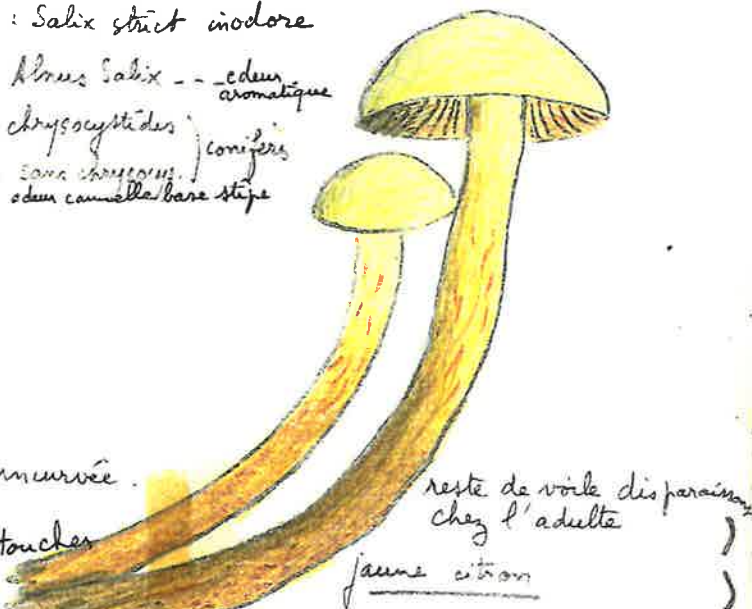 : Salix strict inodore
Alnus Salix - - - odeur
aromatique
chrysocystides
conifères
sans chrysocys.
odeur cannelle base stipe
incurvée.
toucher
reste de voile disparaissant
chez l'adulte
jaune citron